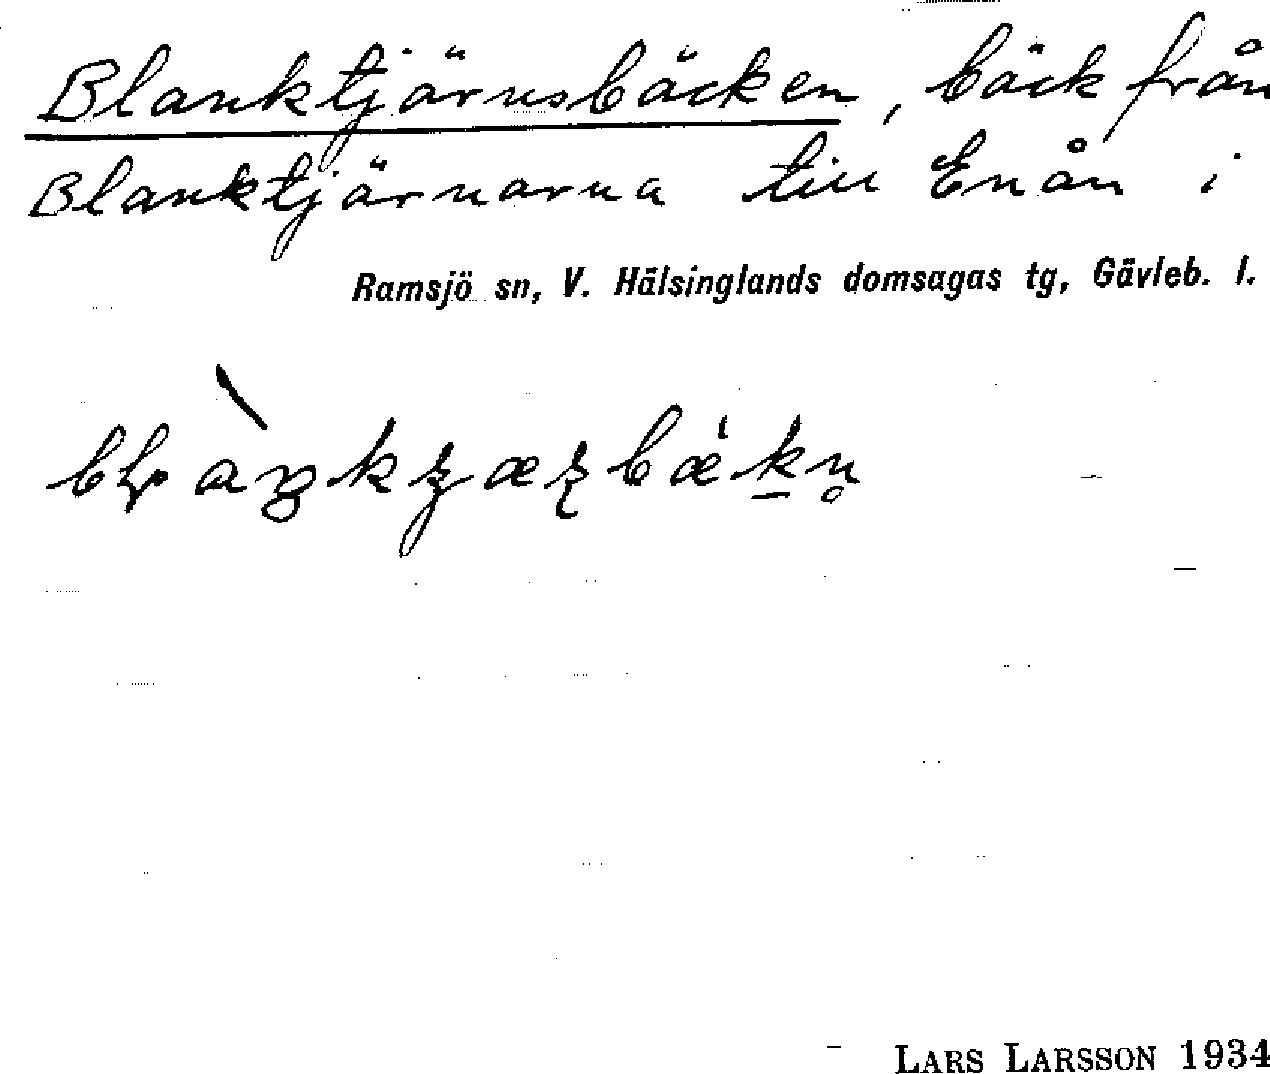 Blanktjärnsbäcken, bäck från
Blanktjärnarna till Enån i
Ramsjö sn, V. Hälsinglands domsagas tg, Gävleb. l.
LARS LARSSON 1934